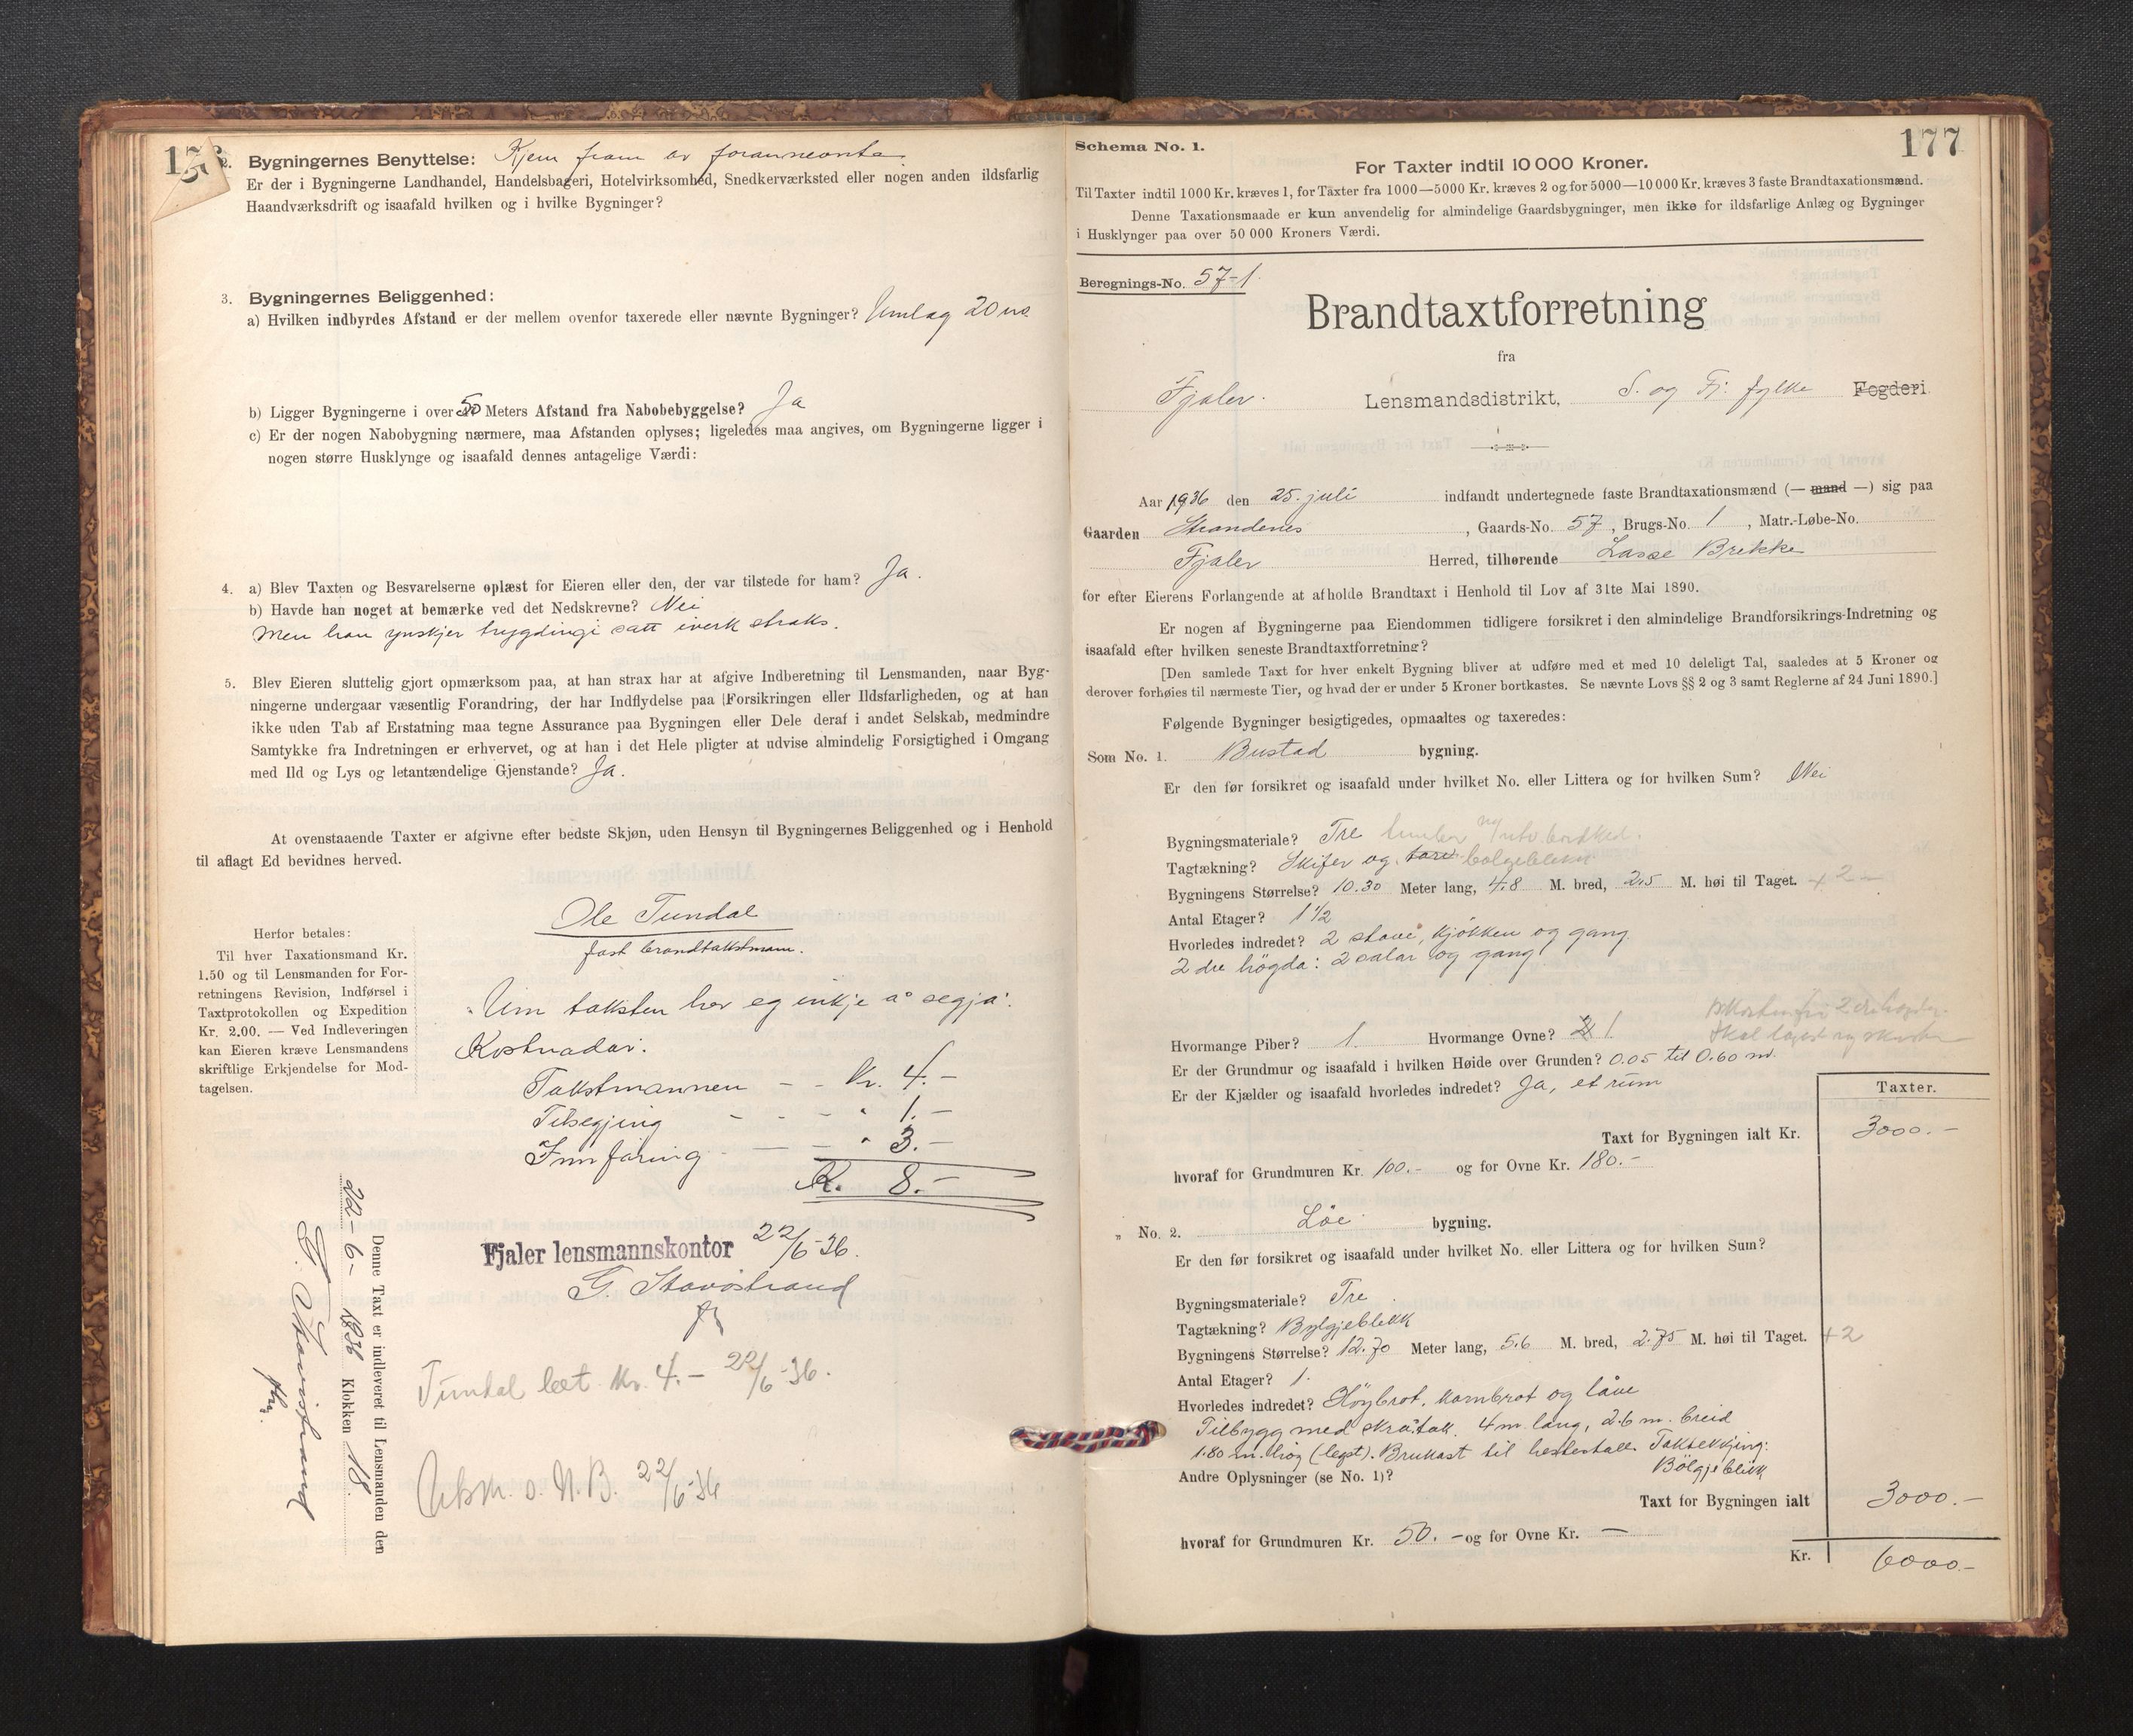 2. Bygningernes Benyttelse: Kjem fram av foranneomta
Er der i Bygningerne Landhandel, Handelsbageri, Hotelvirksomhed, Snedkerværksted eller nogen anden ildsfarlig
Haandværksdrift og isaafald hvilken og i hvilke Bygninger?
3. Bygningernes Beliggenhed:
a) Hvilken indbyrdes Afstand er der mellem ovenfor taxerede eller nævnte Bygninger? Umlag 20 m.
b) Ligger Bygningerne i over 50 Meters Afstand fra Nabobebyggelse? Ja
c) Er der nogen Nabobygning nærmere, maa Afstanden oplyses; ligeledes maa angives, om Bygningerne ligger i
nogen større Husklynge og isaafald dennes antagelige Værdi:
4. a) Blev Taxten og Besvarelserne oplæst for Eieren eller den, der var tilstede for ham? Ja.
b) Havde han noget at bemærke ved det Nedskrevne? Nei
Men han ynskjer trygdingi satt iverk straks.
5. Blev Eieren sluttelig gjort opmærksom paa, at han strax har at afgive Indberetning til Lensmanden, naar Byg-
ningerne undergaar væsentlig Forandring, der har Indflydelse paa Forsikringen eller Ildsfarligheden, og at han
ikke uden Tab af Erstatning maa tegne Assurance paa Bygningen eller Dele deraf i andet Selskab, medmindre
Samtykke fra Indretningen er erhvervet, og at han i det Hele pligter at udvise almindelig Forsigtighed i Omgang
med Ild og Lys og letantændelige Gjenstande? Ja.
At ovenstaaende Taxter er afgivne efter bedste Skjøn, uden Hensyn til Bygningernes Beliggenhed og i Henhold
til aflagt Ed bevidnes herved.
Ole Tundal
fast brandtakstmann.
Herfor betales:
Til hver Taxationsmand Kr.
1.50 og til Lensmanden for For-
retningens Revision, Indførsel i
Taxtprotokollen og Expedition
Kr. 2.00. — Ved Indleveringen
kan Eieren kræve Lensmandens
skriftlige Erkjendelse for Mod-
tagelsen.
Um taksten hev eg inkje å segja.
Kostnadar:
Takstmannen - - Kr. 4.-
Tilsegjing - - - " 1.-
Innføring - - " 3.-
Kr. 8.-
Fjaler lensmannskontor 22/6-36.
G. Stavøstrand
fm
Tundal bet. kr. 4.- 22/6-36.
Utskr. s. N.B. 22/6-36
Denne Taxt er indleveret til Lensmanden den
22-6- 1936 Klokken 18
G. Stavøstrand
fm.
177
Schema No. 1.
For Taxter indtil 10 000 Kroner.
Til Taxter indtil 1000 Kr. kræves 1, for Taxter fra 1000—5000 Kr. kræves 2 og for 5000—10 000 Kr. kræves 3 faste Brandtaxationsmænd.
Denne Taxationsmaade er kun anvendelig for almindelige Gaardsbygninger, men ikke for ildsfarlige Anlæg og Bygninger
i Husklynger paa over 50 000 Kroners Værdi.
Beregnings-No. 57-1.
Brandtaxtforretning
fra
Fjaler. Lensmandsdistrikt, S. og Fj. fylke Fogderi
Aar 1936 den 25. juli indfandt undertegnede faste Brandtaxationsmænd (— mand —) sig paa
Gaarden Strandenes, Gaards-No. 57, Brugs-No. 1, Matr.-Løbe-No.
Fjaler Herred, tilhørende Lasse Brekke
for efter Eierens Forlangende at afholde Brandtaxt i Henhold til Lov af 31te Mai 1890.
Er nogen af Bygningerne paa Eiendommen tidligere forsikret i den almindelige Brandforsikrings-Indretning og
isaafald efter hvilken seneste Brandtaxtforretning?
[Den samlede Taxt for hver enkelt Bygning bliver at udføre med et med 10 deleligt Tal, saaledes at 5 Kroner og
derover forhøies til nærmeste Tier, og hvad der er under 5 Kroner bortkastes. Se nævnte Lovs §§ 2 og 3 samt Reglerne af 24 Juni 1890.]
Følgende Bygninger besigtigedes, opmaaltes og taxeredes:
Som No. 1. Bustad bygning.
Er den før forsikret og isaafald under hvilket No. eller Littera og for hvilken Sum? Nei
Bygningsmateriale? Tre
Tagtækning? Skifer og bølgeblekk
Bygningens Størrelse? 10.30 Meter lang, 4.8 M. bred, 2.5 M. høi til Taget. + 2 -
Antal Etager? 1 1/2
Hvorledes indredet? 2 stove, kjøkken og gang
2 dre høgda: 2 salar og gang
Hvormange Piber? 1. Hvormange Ovne? 1.
Er der Grundmur og isaafald i hvilken Høide over Grunden? 0.05 til 0.60 m.
Er der Kjælder og isaafald hvorledes indredet? Ja, et rum
Taxter.
Taxt for Bygningen ialt Kr. 3000.-
hvoraf for Grundmuren Kr. 100.- og for Ovne Kr. 180.-
" No. 2. Løe bygning.
Er den før forsikret og isaafald under hvilket No. eller Littera og for hvilken Sum?
Bygningsmateriale? Tre
Tagtækning? Bylgjeblekk
Bygningens Størrelse? 12.70 Meter lang, 5.6 M. bred, 2.75 M. høi til Taget. +2
Antal Etager? 1.
Hvorledes indredet? Høybrot, kornbrot og låve
Tilbygg med skråtak. 4 m. lang, 2.6 m. breid
1.80 m. høg (legst). Brukast til hestestall. Taktekkjing:
Bölgjeblikk
Andre Oplysninger (se No. 1)?
Taxt for Bygningen ialt 3000.-
hvoraf for Grundmuren Kr. 50.- og for Ovne Kr. —
Kr. 6000.-